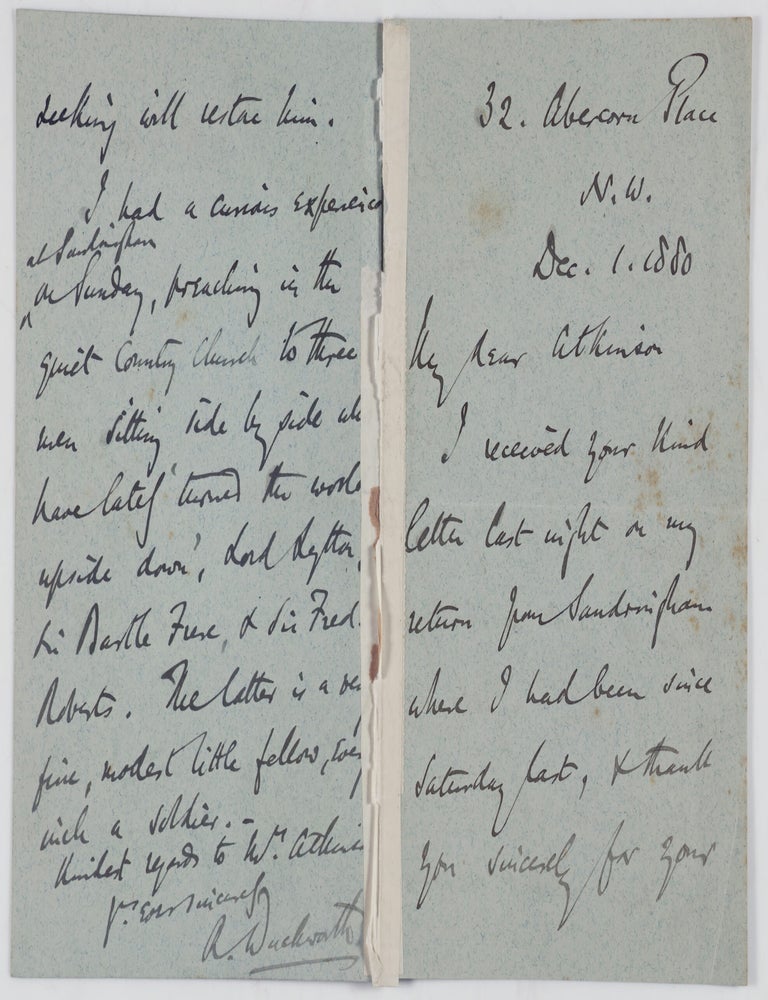 32. Abercorn Place
N.W.
Dec. 1. 1880
My dear Atkinson
I received your kind
letter last night on my
return from Sandringham
where I had been since
Saturday last, & thank
you sincerely for your
seeking will restore him.
I had a curious experience
at Sandringham
on Sunday, preaching in the
quiet Country Church to three
men sitting side by side
have lately 'turned the world
upside down', Lord Lytton,
Sir Bartle Frere, & Sir Fred.
Roberts. The latter is a
fine, modest little fellow,
inch a soldier. -
Kindest regards to Mrs. Atkinson
Yrs. ever sincerely
R. Duckworth